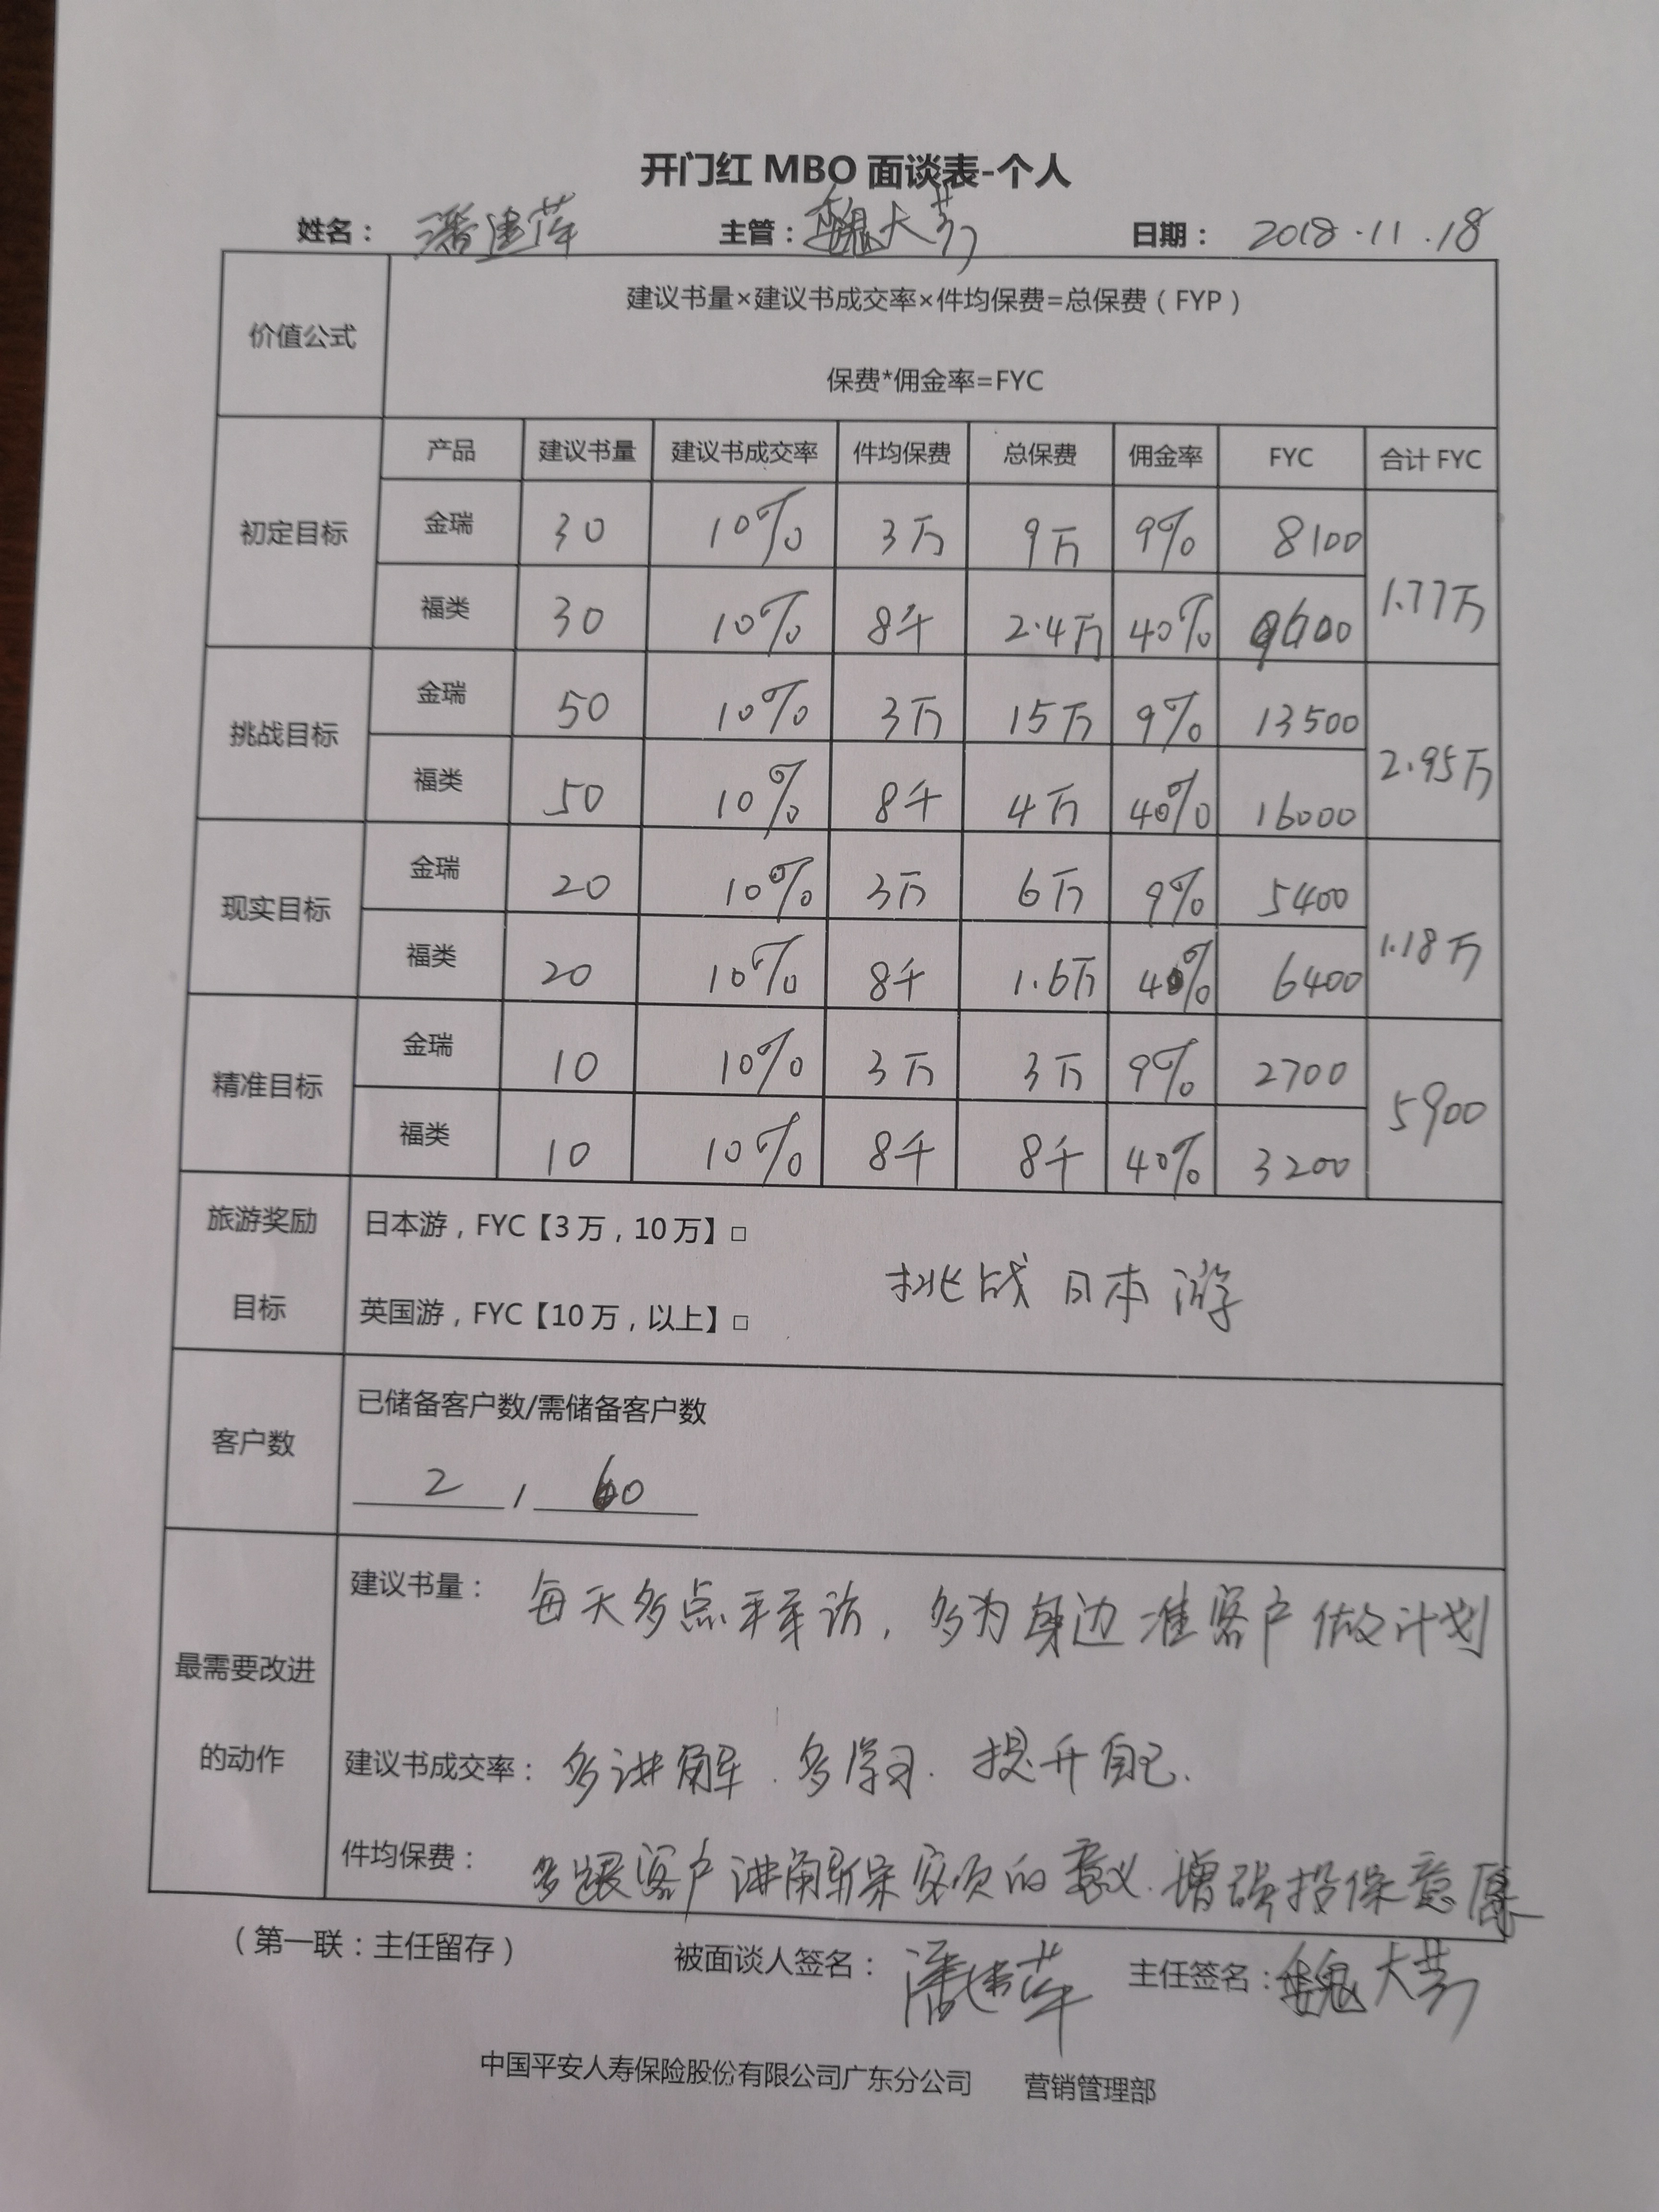 开门红 MBO 面谈表-个人
姓名： 潘建萍 主管：魏大芳 日期： 2018.11.18
价值公式
建议书量×建议书成交率×件均保费=总保费（FYP）
保费*佣金率=FYC
产品 建议书量 建议书成交率 件均保费 总保费 佣金率 FYC 合计 FYC
初定目标
金瑞 30 10% 3万 9万 9% 8100
福类 30 10% 8千 2.4万 40% 9600
1.77万
挑战目标
金瑞 50 10% 3万 15万 9% 13500
福类 50 10% 8千 4万 40% 16000
2.95万
现实目标
金瑞 20 10% 3万 6万 9% 5400
福类 20 10% 8千 1.6万 40% 6400
1.18万
精准目标
金瑞 10 10% 3万 3万 9% 2700
福类 10 10% 8千 8千 40% 3200
5900
旅游奖励
目标
日本游，FYC【3万，10万】□
英国游，FYC【10万，以上】□
挑战日本游
客户数
已储备客户数/需储备客户数
2 / 60
最需要改进
的动作
建议书量： 每天多点拜访，多为身边准客户做计划
建议书成交率： 多讲解.多学习.提升自己.
件均保费： 多跟客户讲解保额的意义.增强投保意愿
（第一联：主任留存） 被面谈人签名： 潘建萍 主任签名：魏大芳
中国平安人寿保险股份有限公司广东分公司 营销管理部